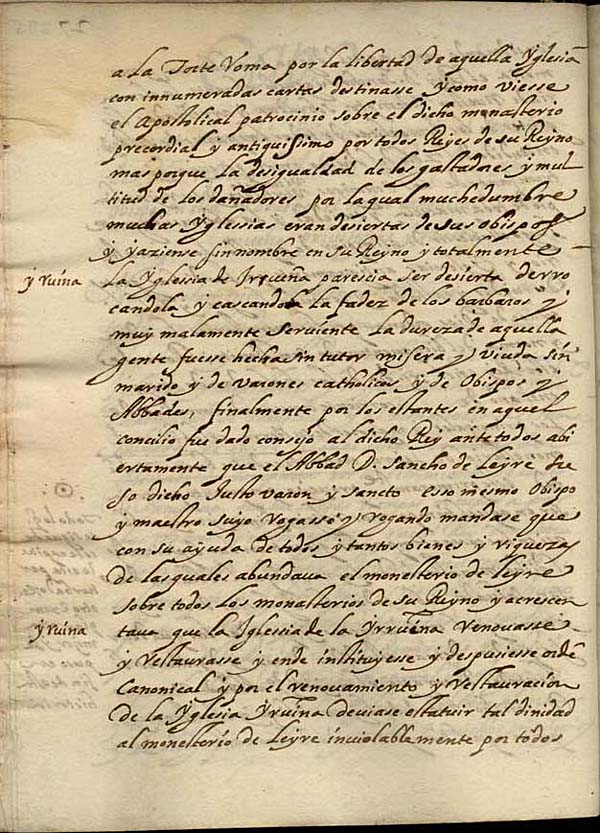 a la Corte Roma por la libertad de aquella Yglesia
con innumeradas cartas destinasse y como viesse
el Apostolical patrocinio sobre el dicho monasterio
precordial y antiquissimo por todos Reyes de su Reyno
mas porque la desigualdad de los gastadores y mul
titud de los dañadores por la qual muchedumbre
muchas Yglessias eran desiertas de sus obispos
y yaziense sin nombre en su Reyno y totalmente
y ruina
la Yglessia de Irruña parescia ser desierta derro
candola y cascandola la fadez de los barbaros y
muy malamente serviente la dureza de aquella
gente fuesse hecha sin tutor misera y viuda sin
marido y de varones catholicos y de Obispos y
Abbades, finalmente por los estantes en aquel
concilio fue dado consejo al dicho Rey ante todos abi
ertamente que el Abbad D. Sancho de Leyre su
so dicho Justo varon y sancto esso mesmo Obispo
y maestro suyo rogasse y rogando mandase que
con su ayuda de todos y tantos bienes y riquezas
de las quales abundaua el monesterio de leyre
sobre todos los monasterios de su Reyno y acrescen
y ruina
taua que la Iglessia de la Yrruina renouasse
y restaurasse y ende instituyesse y despusiesse ordē
Canonical y por el renouamiento y restauracion
de la Yglesia Yruina deuiase estatuir tal dinidad
al monesterio de leyre inuiolablemente por todos